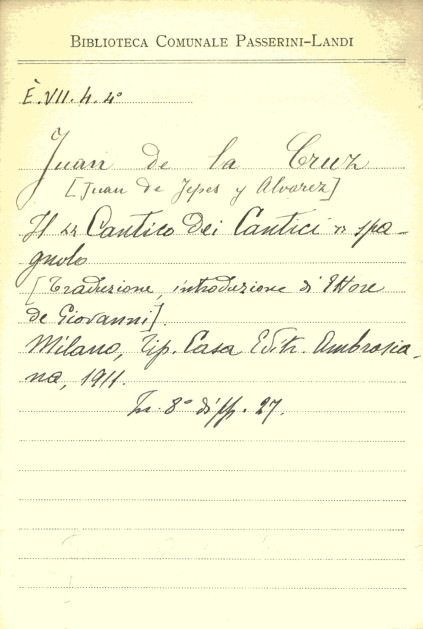 BIBLIOTECA COMUNALE PASSERINI-LANDI
È.VII.4.4°
Juan de la Cruz
[Juan de Jepes y Alvarez]
Il « Cantico Dei Cantici » spa-
gnolo
[Traduzione, introduzione di Ettore
de Giovanni].
Milano, Tip. Casa Editr. Ambrosia-
na, 1911.
In 8° di pp. 27.